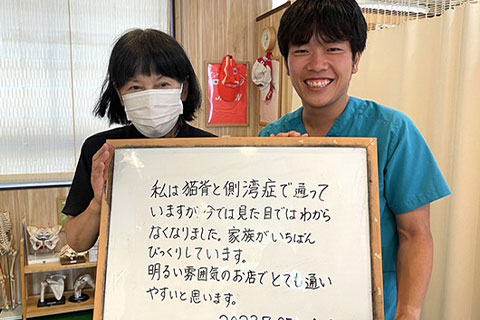 私は猫背と側湾症で通って
いますが今では見た目ではわから
なくなりました。家族がいちばん
びっくりしています。
明るい雰囲気のお店でとても通い
やすいと思います。